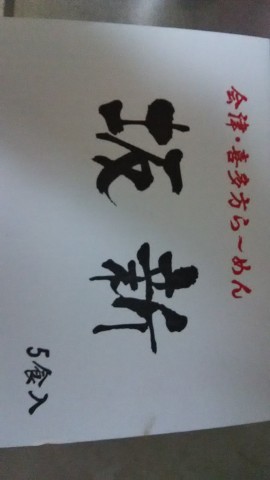 会津・喜多方ら〜めん
坂新
5食入